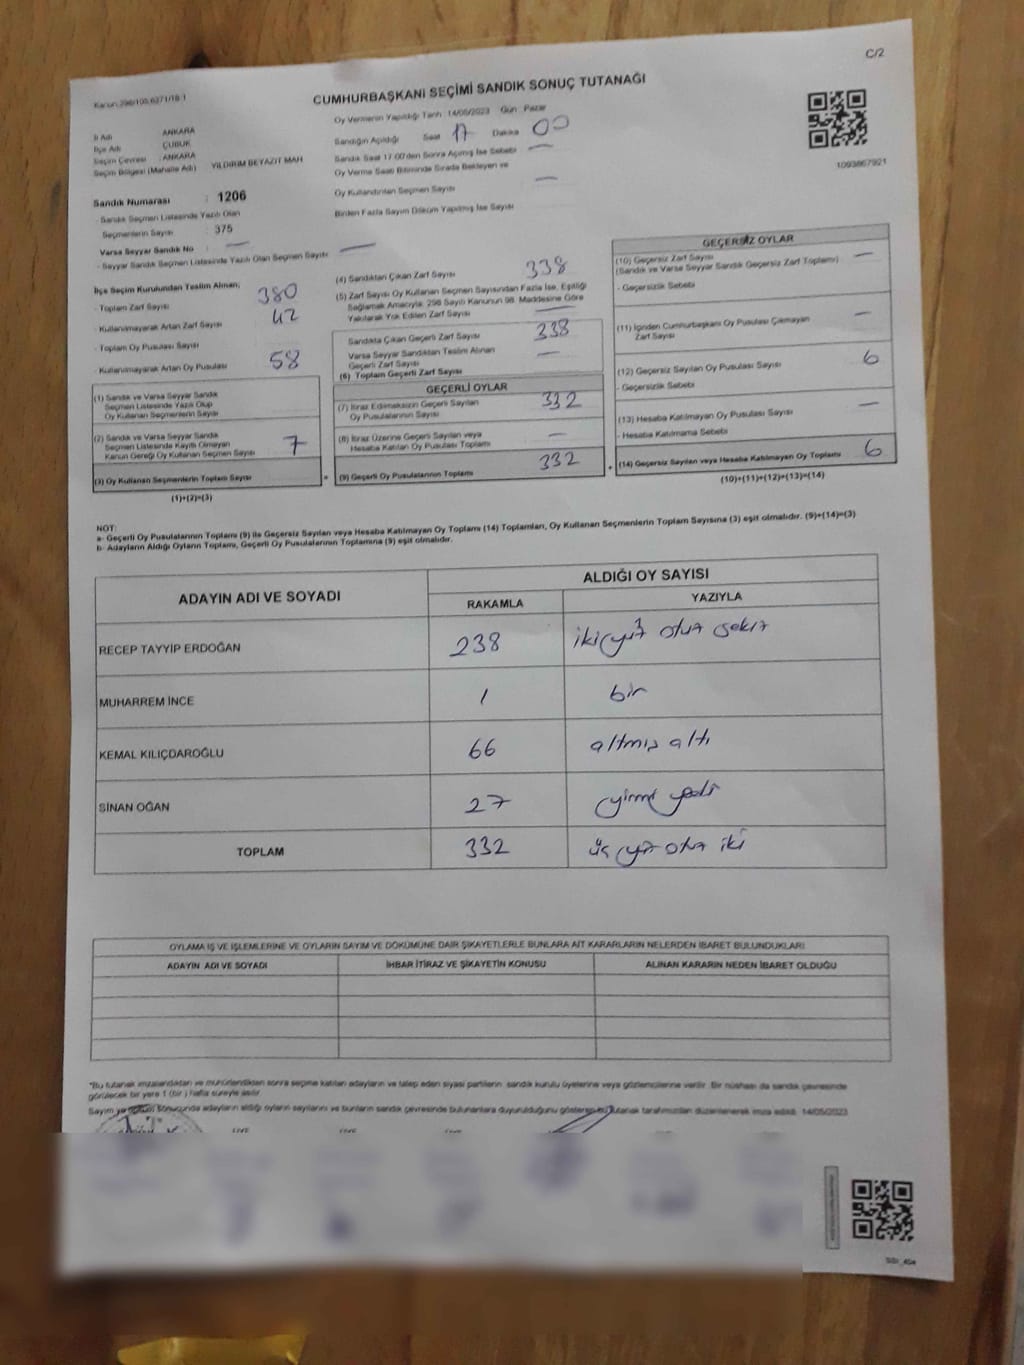 C/2
Kanun:298/105,6271/18:1
CUMHURBAŞKANI SEÇİMİ SANDIK SONUÇ TUTANAĞI
Oy Vermenin Yapıldığı Tarih :14/05/2023 Gün : Pazar
İl Adı : ANKARA
İlçe Adı : ÇUBUK
Seçim Çevresi : ANKARA
Seçim Bölgesi (Mahalle Adı) : YILDIRIM BEYAZIT MAH
Sandığın Açıldığı Saat 17 Dakika 00
Sandık Saat 17.00'den Sonra Açılmış İse Sebebi —
Oy Verme Saati Bitiminde Sırada Bekleyen ve
Oy Kullandırılan Seçmen Sayısı —
Birden Fazla Sayım Döküm Yapılmış İse Sayısı
1093867921
Sandık Numarası : 1206
- Sandık Seçmen Listesinde Yazılı Olan
Seçmenlerin Sayısı : 375
Varsa Seyyar Sandık No —
- Seyyar Sandık Seçmen Listesinde Yazılı Olan Seçmen Sayısı —
İlçe Seçim Kurulundan Teslim Alınan;
- Toplam Zarf Sayısı 380
- Kullanılmayarak Artan Zarf Sayısı 42
- Toplam Oy Pusulası Sayısı
- Kullanılmayarak Artan Oy Pusulası 58
(1) Sandık ve Varsa Seyyar Sandık
Seçmen Listesinde Yazılı Olup
Oy Kullanan Seçmenlerin Sayısı
(2) Sandık ve Varsa Seyyar Sandık
Seçmen Listesinde Kayıtlı Olmayan
Kanun Gereği Oy Kullanan Seçmen Sayısı 7
(3) Oy Kullanan Seçmenlerin Toplam Sayısı
(1)+(2)=(3)
(4) Sandıktan Çıkan Zarf Sayısı 338
(5) Zarf Sayısı Oy Kullanan Seçmen Sayısından Fazla İse, Eşitliği
Sağlamak Amacıyla; 298 Sayılı Kanunun 98. Maddesine Göre
Yakılarak Yok Edilen Zarf Sayısı —
Sandıkta Çıkan Geçerli Zarf Sayısı 338
Varsa Seyyar Sandıktan Teslim Alınan
Geçerli Zarf Sayısı —
(6) Toplam Geçerli Zarf Sayısı
GEÇERLİ OYLAR
(7) İtiraz Edilmeksizin Geçerli Sayılan
Oy Pusulalarının Sayısı 332
(8) İtiraz Üzerine Geçerli Sayılan veya
Hesaba Katılan Oy Pusulası Toplamı —
= (9) Geçerli Oy Pusulalarının Toplamı 332
GEÇERSİZ OYLAR
(10) Geçersiz Zarf Sayısı —
(Sandık ve Varsa Seyyar Sandık Geçersiz Zarf Toplamı)
- Geçersizlik Sebebi
(11) İçinden Cumhurbaşkanı Oy Pusulası Çıkmayan
Zarf Sayısı —
(12) Geçersiz Sayılan Oy Pusulası Sayısı 6
- Geçersizlik Sebebi
(13) Hesaba Katılmayan Oy Pusulası Sayısı —
- Hesaba Katılmama Sebebi
+ (14) Geçersiz Sayılan veya Hesaba Katılmayan Oy Toplamı 6
(10)+(11)+(12)+(13)=(14)
NOT:
a- Geçerli Oy Pusulalarının Toplamı (9) ile Geçersiz Sayılan veya Hesaba Katılmayan Oy Toplamı (14) Toplamları, Oy Kullanan Seçmenlerin Toplam Sayısına (3) eşit olmalıdır. (9)+(14)=(3)
b- Adayların Aldığı Oyların Toplamı, Geçerli Oy Pusulalarının Toplamına (9) eşit olmalıdır.
ADAYIN ADI VE SOYADI
ALDIĞI OY SAYISI
RAKAMLA YAZIYLA
RECEP TAYYİP ERDOĞAN 238 ikiyüz otuz sekiz
MUHARREM İNCE 1 bir
KEMAL KILIÇDAROĞLU 66 altmış altı
SİNAN OĞAN 27 yirmi yedi
TOPLAM 332 üç yüz otuz iki
OYLAMA İŞ VE İŞLEMLERİNE VE OYLARIN SAYIM VE DÖKÜMÜNE DAİR ŞİKAYETLERLE BUNLARA AİT KARARLARIN NELERDEN İBARET BULUNDUKLARI
ADAYIN ADI VE SOYADI İHBAR İTİRAZ VE ŞİKAYETİN KONUSU ALINAN KARARIN NEDEN İBARET OLDUĞU
*Bu tutanak imzalandıktan ve mühürlendikten sonra seçime katılan adayların ve talep eden siyasi partilerin sandık kurulu üyelerine veya gözlemcilerine verilir. Bir nüshası da sandık çevresinde
görülecek bir yere 1 (bir) hafta süreyle asılır.
Sayım ve döküm sonucunda adayların aldığı oyların sayılarını ve bunların sandık çevresinde bulunanlara duyurulduğunu gösteren bu tutanak tarafımızdan düzenlenerek imza edildi. 14/05/2023